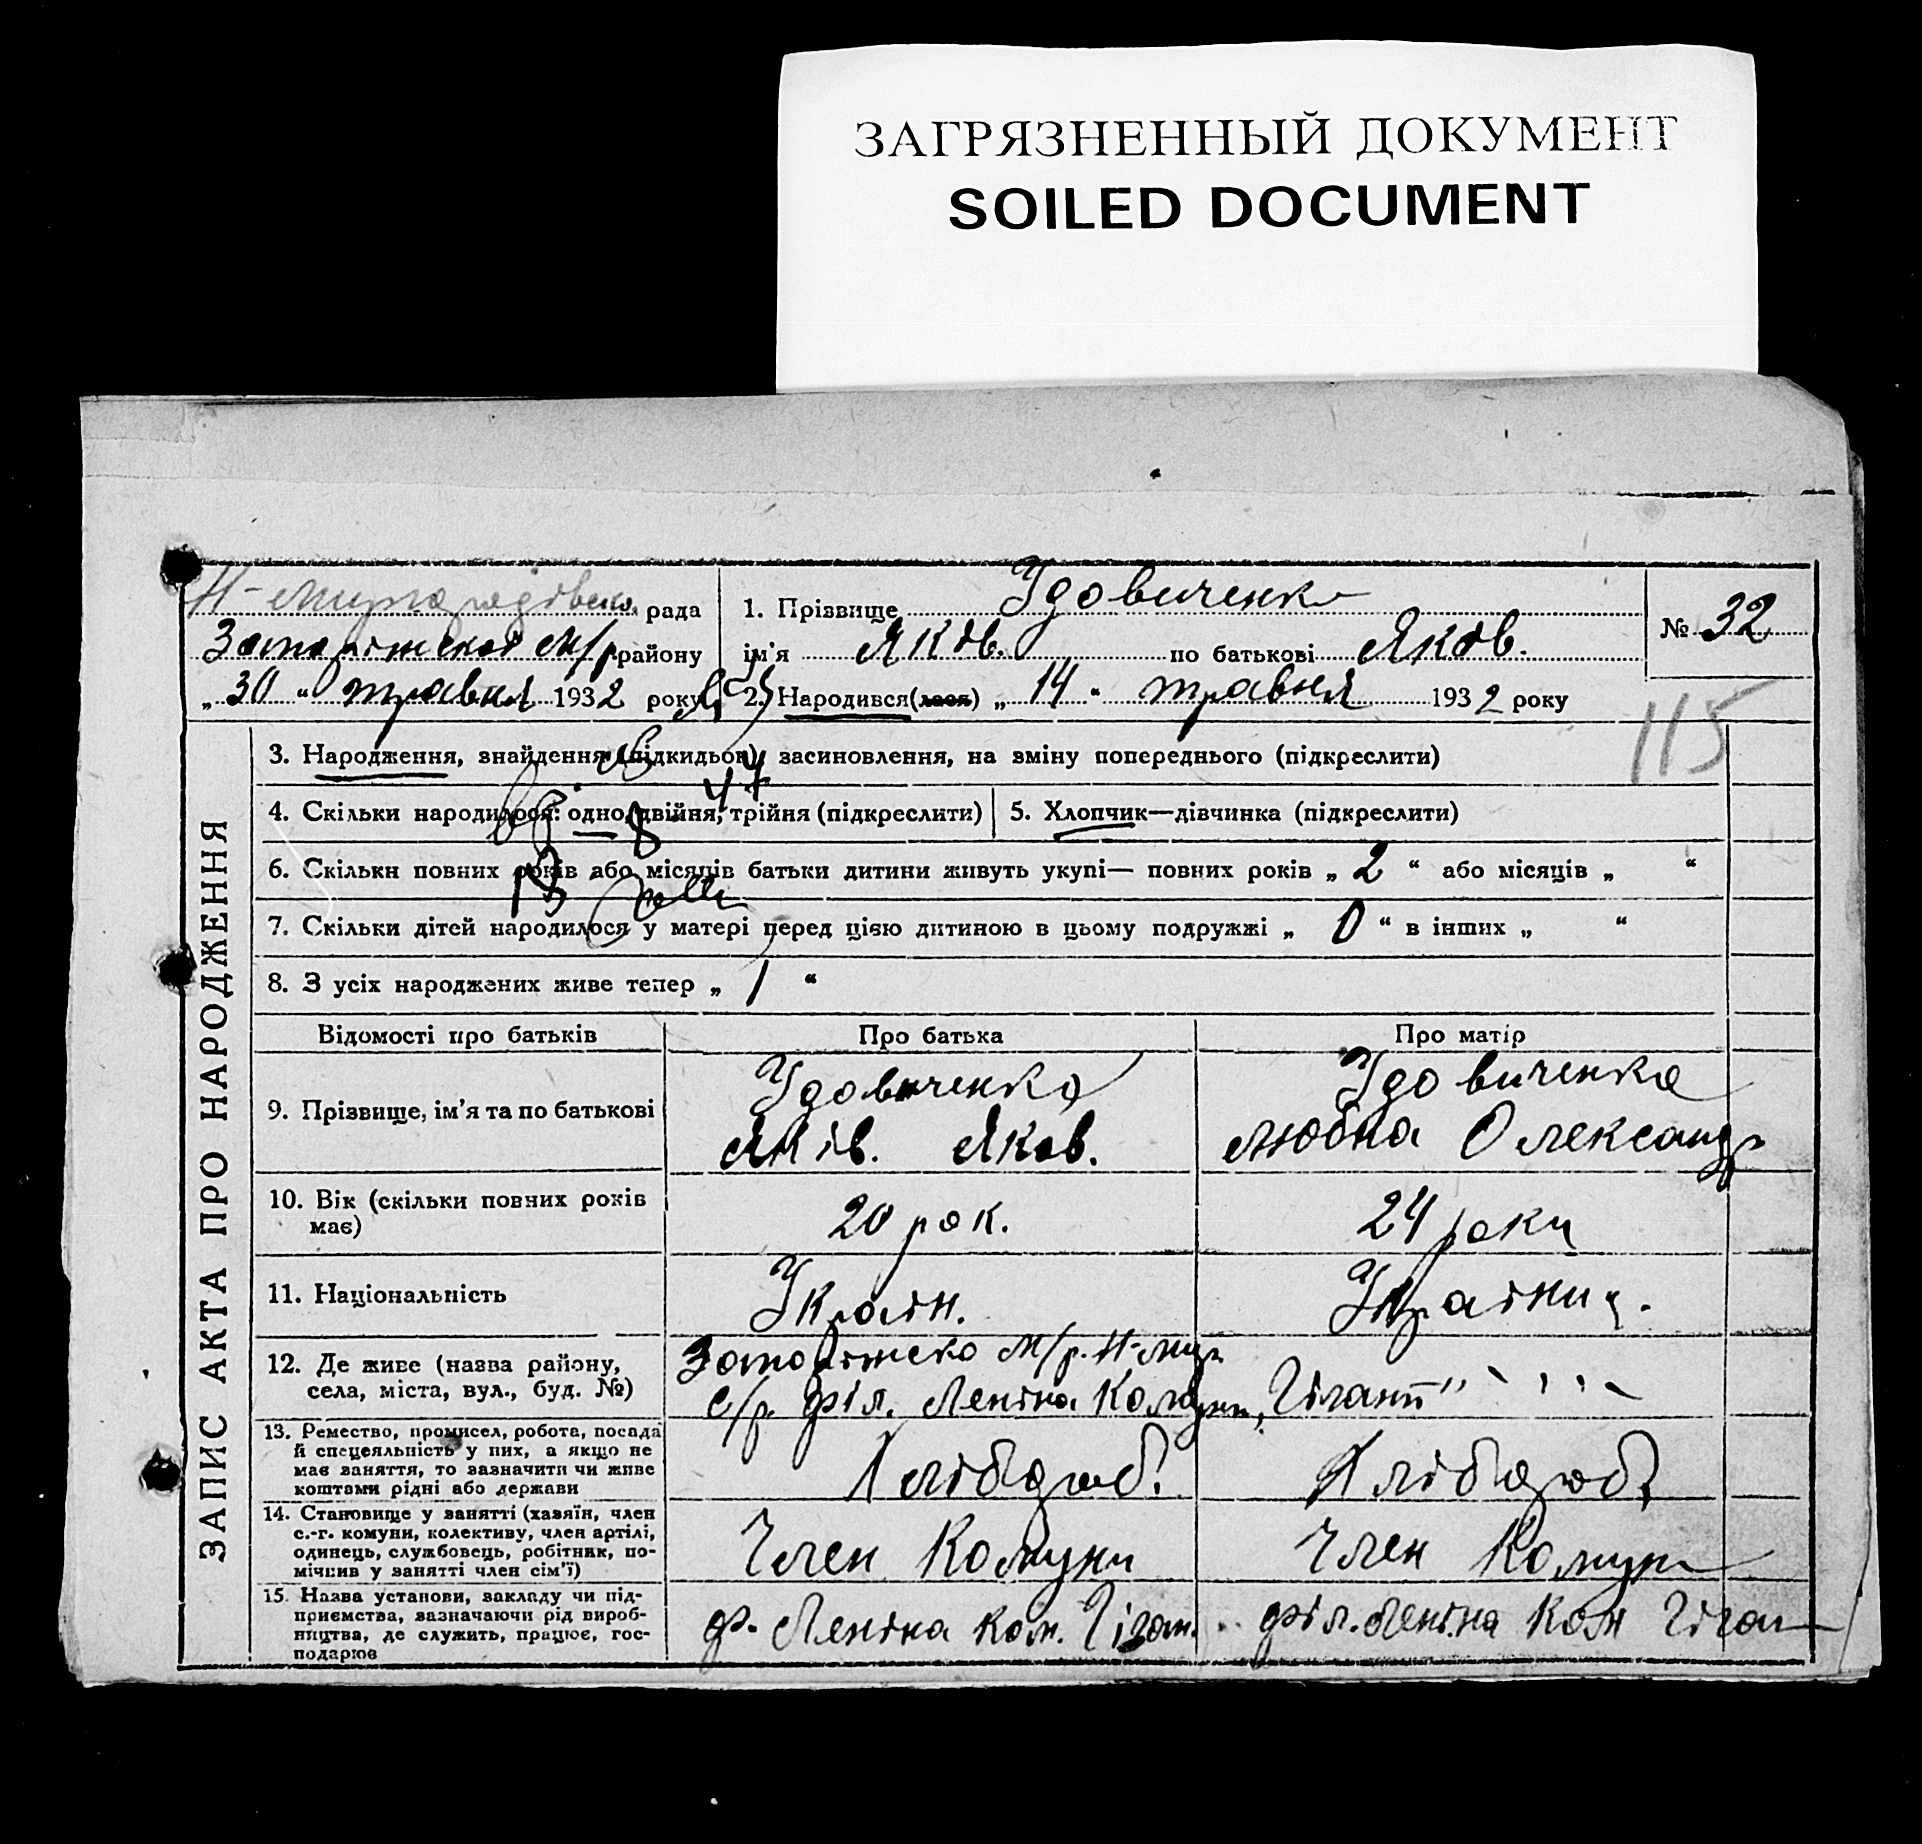 ЗАГРЯЗНЕННЫЙ ДОКУМЕНТ
SOILED DOCUMENT
рада
району
„30“ травня 1932 року
1. Прізвище Удовиченко
ім'я Яків. по батькові Яків.
2. Народився(лася) „14“ травня 1932 року
№ 32
115
ЗАПИС АКТА ПРО НАРОДЖЕННЯ
3. Народження, знайдення (підкидьок), засиновлення, на зміну попереднього (підкреслити)
4. Скільки народилося: одно, двійня, трійня (підкреслити)
5. Хлопчик—дівчинка (підкреслити)
6. Скільки повних років або місяців батьки дитини живуть укупі— повних років „2“ або місяців „ “
7. Скільки дітей народилося у матері перед цією дитиною в цьому подружжі „0“ в інших „ “
8. З усіх народжених живе тепер „1“
Відомості про батьків
Про батька
Про матір
9. Прізвище, ім'я та по батькові
Удовиченко
Яків. Яков.
Удовиченко
Любка Олександр
10. Вік (скільки повних років
має)
20 рок.
24 роки
11. Національність
Україн.
Українц.
12. Де живе (назва району,
села, міста, вул., буд. №)
М/р. Н-
с/р. філ. Леніна Комуни, Гігант"
13. Ремество, промисел, робота, посада
й спецеяльність у них, а якщо не
має заняття, то зазначити чи живе
коштами рідні або держави
Хлібороб.
Хлібороб.
14. Становище у занятті (хазяїн, член
с.-г. комуни, колективу, член артілі,
одинець, службовець, робітник, по-
мічник у занятті член сім'ї)
Член Комуни
Член Комуни
15. Назва установи, закладу чи під-
приємства, зазначаючи рід вироб-
ництва, де служить, працює, гос-
подарює
ф. Леніна Ком. Гіган.
філ. Леніна Ком Гіган